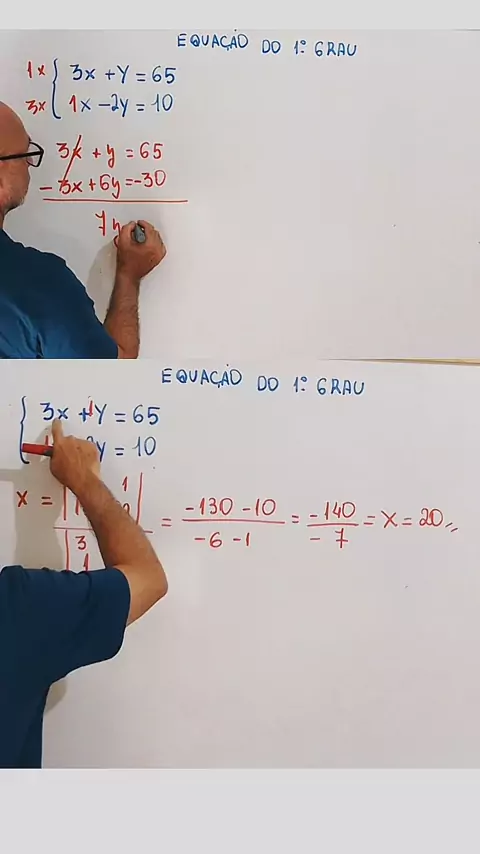 EQUAÇÃO DO 1º GRAU
1x { 3x + y = 65
3x { 1x - 2y = 10
3x + y = 65
- 3x + 6y = -30
7y
EQUAÇÃO DO 1º GRAU
{ 3x + 1y = 65
y = 10
x = | 1 | / | 3 1 = -130 - 10 / -6 - 1 = -140 / -7 = x = 20 //